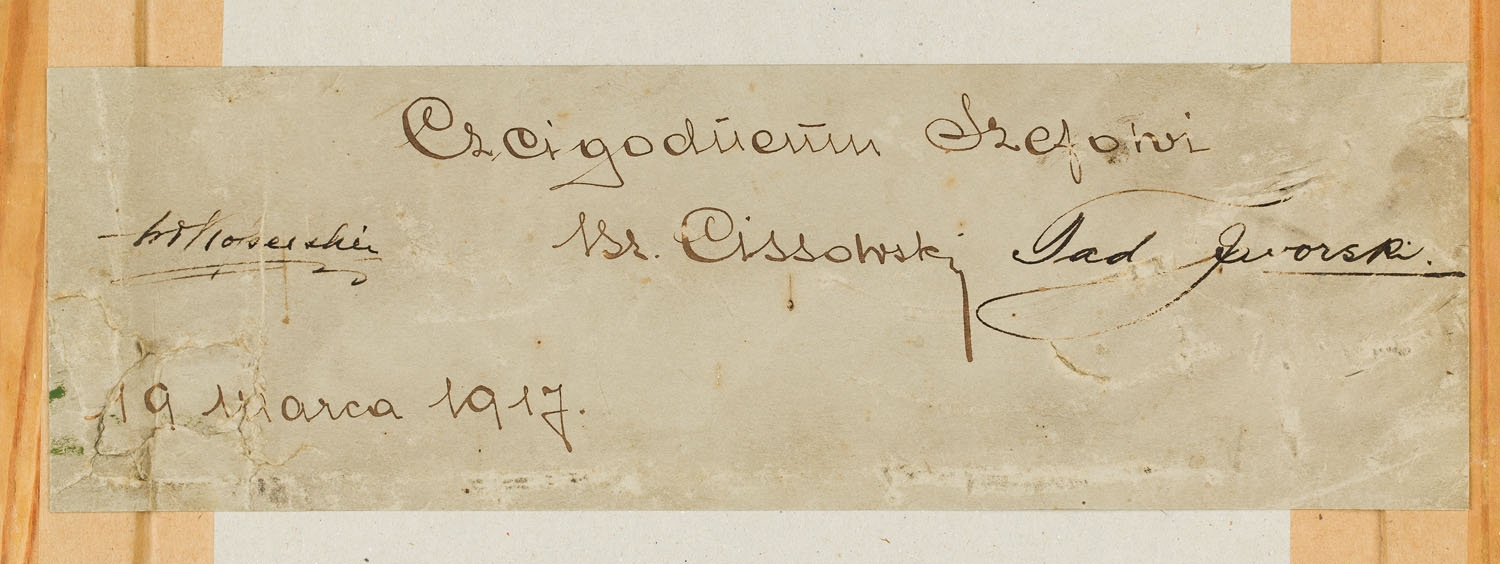 Czcigodnemu Szefowi
Wł Koserski Br. Cissowski Tad Jworski.
19 marca 1917.